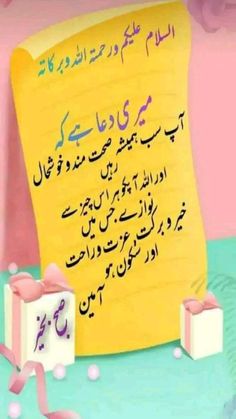 السلام علیکم ورحمتہ اللہ وبرکاتہ
میری دعا ہے کہ
آپ سب ہمیشہ صحت مند و خوشحال
رہیں
اور اللہ آپکو ہر اس چیز سے
نوازے جس میں
خیر و برکت عزت و راحت
اور سکون ہو
آمین
صبح بخیر